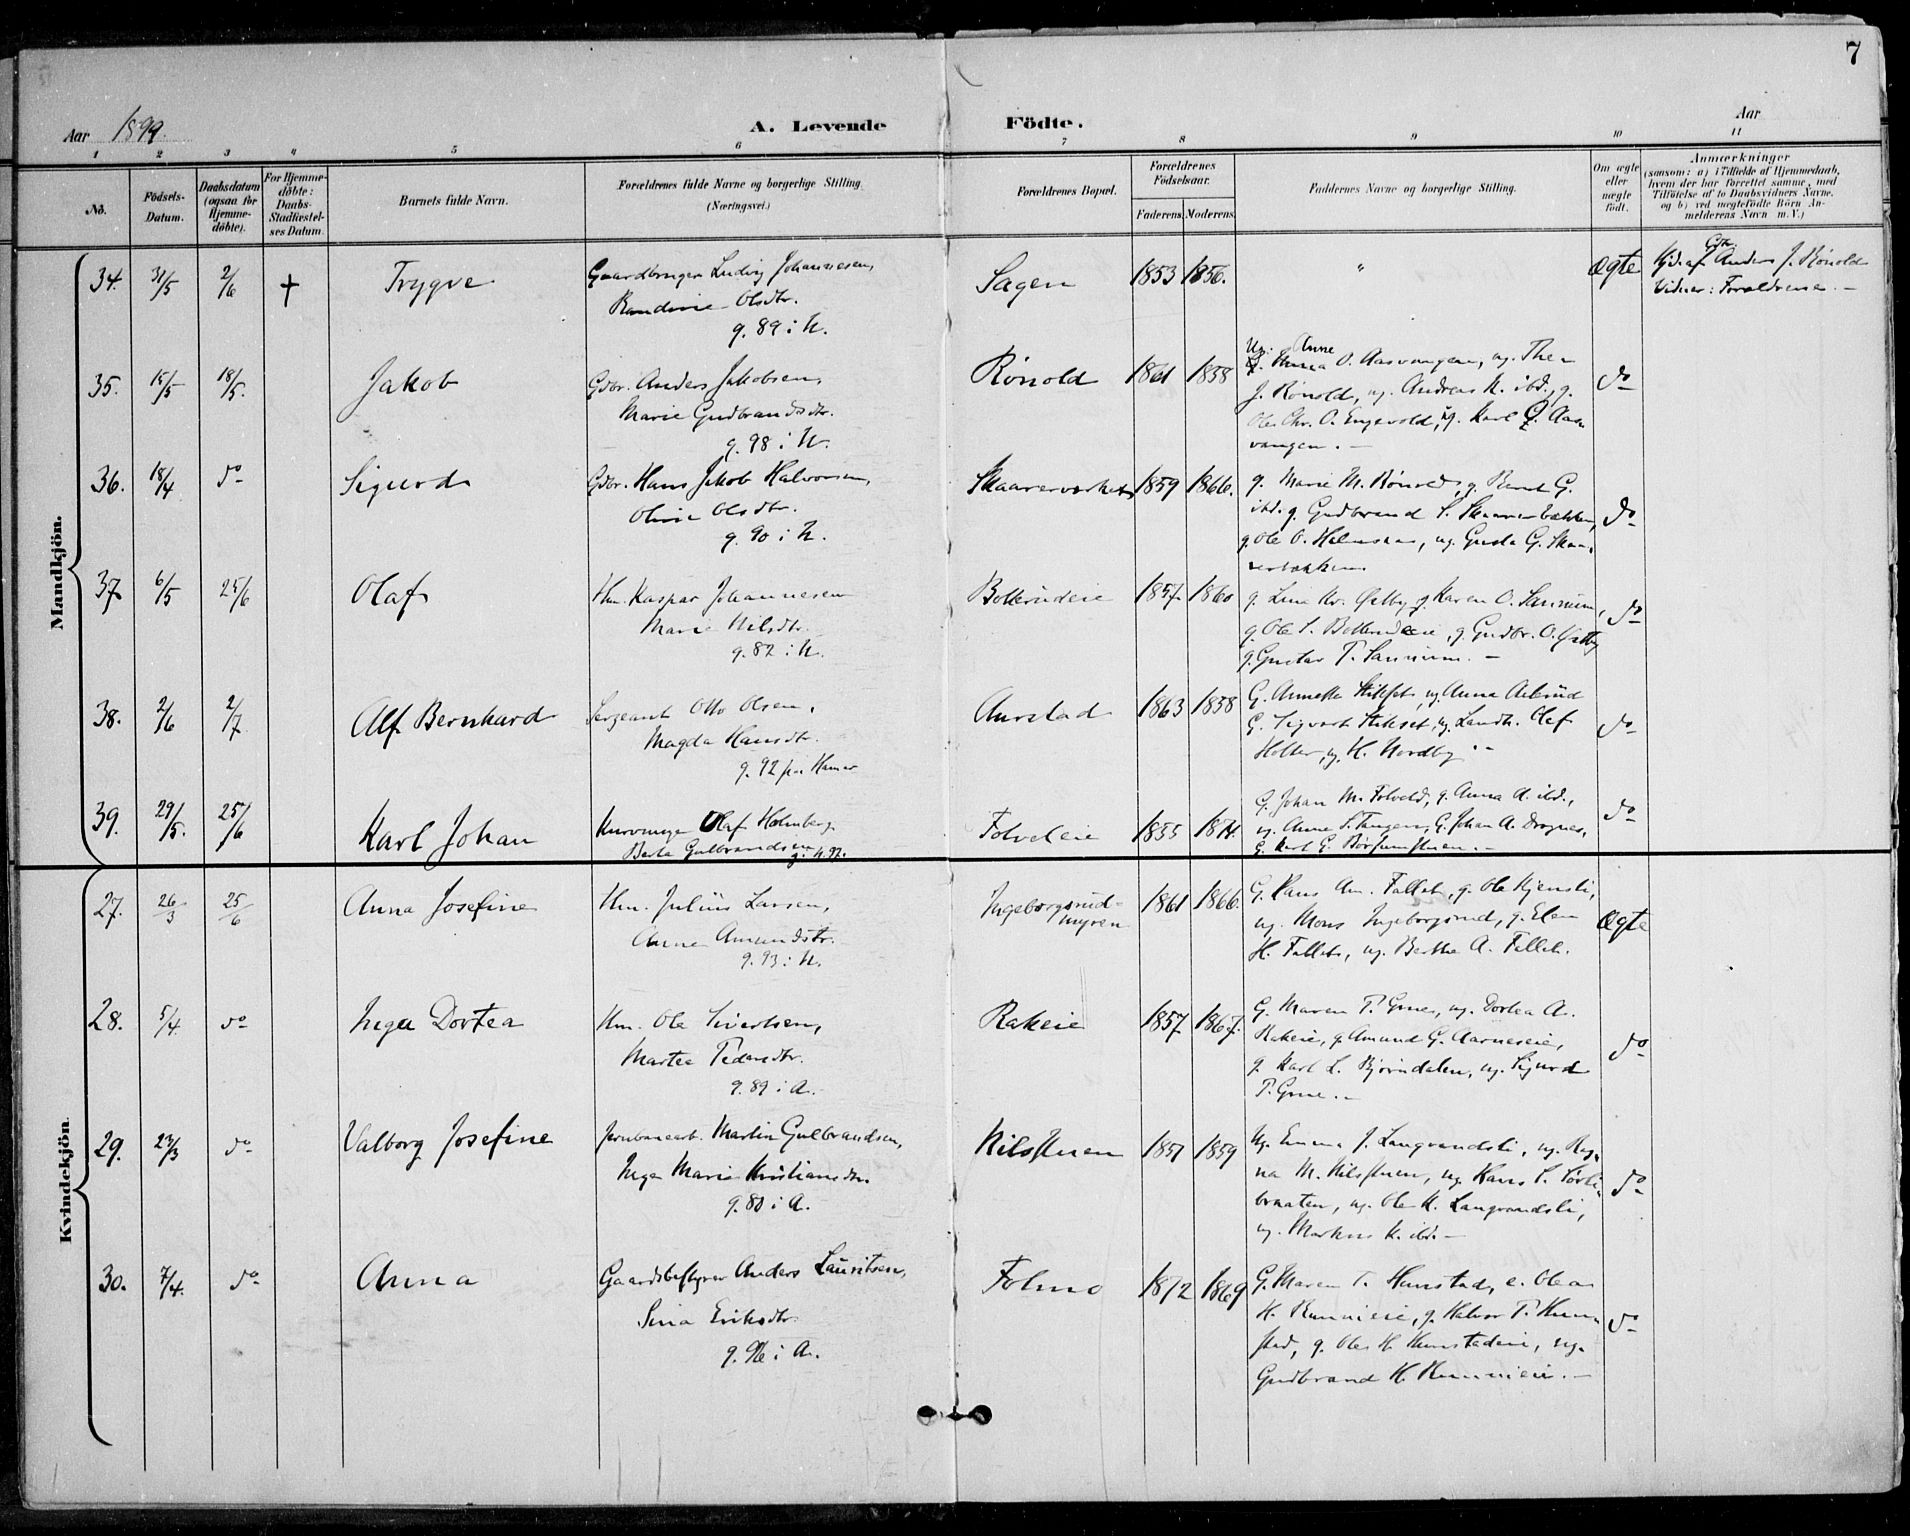 7
Aar 1899.
A. Levende Födte.
Aar
1 2 3 4 5 6 7 8 9 10 11
No.
Födsels-
Datum.
Daabsdatum
(ogsaa for
Hjemme-
döbte).
For Hjemme-
döbte:
Daabs-
Stadfæstel-
ses Datum.
Barnets fulde Navn.
Forældrenes fulde Navne og borgerlige Stilling.
(Næringsvei.)
Forældrenes Bopæl.
Forældrenes
Födselsaar.
Faderens. Moderens.
Faddernes Navne og borgerlige Stilling.
Om ægte
eller
uægte
födt.
Anmærkninger
(saasom: a) i Tilfælde af Hjemmedaab,
hvem der har forrettet samme, med
Tilföielse af to Daabsvidners Navne,
og b) ved uægtefödte Börn An-
melderens Navn m. V.)
Mandkjön.
34. 31/5 2/6 + Trygve
Gaardbruger Ludvig Johannesen,
Randine Olsdtr.
g. 89 i N.
Sagen 1853 1856. " Ægte
Hjd. af Gbr. Anders J. Rönold
Vidner: Forældrene. -
35. 15/5 18/5. Jakob
Gdbr. Anders Jakobsen,
Marie Gudbrandsdtr.
g. 98 i N.
Rönold 1861 1858
Ug. Anne O. Aasvangen, ug. Thea
J. Rönold, ug. Andreas K. ibd., g.
Ole Chr. O. Engevold, ug. Karl Aas-
vangen. -
do
36. 18/4 do Sigurd
Gdbr. Hans Jakob Halvorsen,
Oline Olsdtr.
g. 90 i N.
Skaareverket 1859 1866.
g. Marie M. Rönold, g. Bernt G.
ibd. g. Gudbrand S. Skaarerbakken,
g. Ole O. Holmsaas, ug. Gusta G. Skaa-
rerbakken
do
37. 6/5 25/6 Olaf
Hm. Kaspar Johannesen
Marie Nilsdtr.
g. 82 i N.
Bollerudeie 1857. 1860
g. Lina Kr. Østby, g. Karen O. Sannum,
g. Ole S. Bollerudeie, g. Gudbr. O. Østby
g. Gustav T. Sannum. -
do
38. 2/6 2/7 Alf Bernhard
Sergeant Otto Olsen,
Magda Hansdtr.
g. 92 paa Hamar
Aurstad 1863 1858
G. Annette Stikset, ug. Anna Aabrud
G. Sigvart Stikset, ug. Landh. Olaf
Holter, ug. H. Nordby. -
do
39. 29/5. 25/6 Karl Johan
Kurvmager Olaf Holmberg
Berta Gulbrandsen
g. N. 92.
Folvaleie 1855
G. Johan M. Folvald, g. Anna A. ibd.,
ug. Anne S. Tangen, G. Johan A. Dragnes,
G. Karl G. Börsumstuen. -
do
Kvindekjön.
27. 26/3 25/6 Anna Josefine
Hm. Julius Larsen,
Anne Amundsdtr.
g. 93 i N.
Ingeborgsrud-
myren
1861 1866.
G. Hans Am. Fallet, g. Ole Kjensli,
ug. Mons Ingeborgsrud, g. Elen
H. Fallet, ug. Berthe A. Fallet.
Ægte
28. 5/4. do Inga Dortea
Hm. Ole Sivertsen,
Martea Pedersdtr.
g. 89 i A.
Rakeie 1857. 1867.
G. Maren P. Grue, ug. Dortea A.
Rakeie, g. Amund G. Aarneseie,
g. Karl L. Björndalen, ug. Sigurd
P. Grue. -
do
29. 23/3 do Valborg Josefine
Jernbanearb. Martin Gulbrandsen,
Inga Marie Kristiansdtr.
g. 80 i A.
Nilsstuen 1857 1859
Ug. Emma J. Langvandsli, ug. Rag-
na M. Nilsstuen, ug. Hans S. Sörli-
braaten, ug. Ole K. Langvandsli,
ug. Markus K. ibd. -
do
30. 7/4. do Anna
Gaardsbestyrer Anders Lauritsen,
Sina Eriksdtr.
g. 96 i A.
Folmo 1872 1869
G. Maren T. Hunstad, e. Olea
H. Runnieie, g. Halvor T. Hun-
stad, g. Ole H. Hunstadeie, ug.
Gudbrand H. Runnieie. -
do